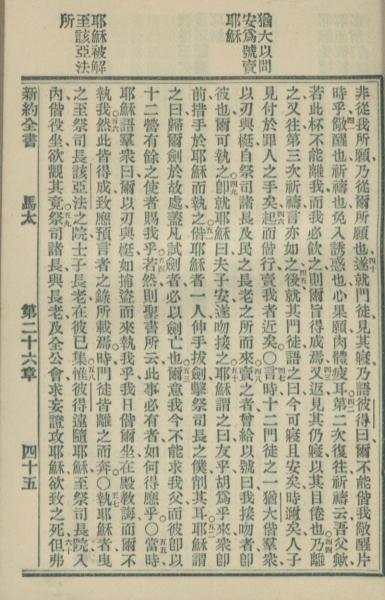 猶大以問
安爲號賣
耶穌
耶穌被解
至該亞法
所
非從我所願乃從爾所願也遂就門徒見其寢乃語彼得曰爾不能偕我儆醒片
時乎儆醒也祈禱也免入誘惑也心果願肉體疲耳第二次復往祈禱云吾父歟
若此杯不能離我而我必飲之則爾旨得成焉又返見其仍寢以其目倦也乃離
之又往第三次祈禱言亦如之後就其門徒語之曰今可寢且安矣時邇矣人子
見付於罪人之手矣起而偕行賣我者近矣○言時十二門徒之一猶大偕羣衆
以刃與梃自祭司諸長及民之長老之所而來賣之者曾給以號曰我接吻者卽
彼也爾可執之卽就耶穌曰夫子安遂吻接之耶穌謂之曰友乎胡爲乎來衆卽
前措手於耶穌而執之偕耶穌者一人伸手拔劍擊祭司長之僕削其耳耶穌謂
之曰歸爾劍於故處蓋凡試劍者必以劍亡也爾意我今不能求我父而彼卽以
十二營有餘之使者賜我乎若然則聖書所云此事必有者如何得應乎○當時
耶穌語羣衆曰爾以刃與梃如捕盜而來執我乎我日偕爾坐在殿敎誨而爾不
執我然此皆得成致應預言者之錄所載焉時門徒皆離之而奔○執耶穌者曳
之至祭司長該亞法之院士子長老在彼已集惟彼得遠隨耶穌至祭司長院入
內偕役坐欲觀其竟祭司諸長與長老及全公會求妄證攻耶穌欲致之死但弗
新約全書 馬太 第二十六章 四十五